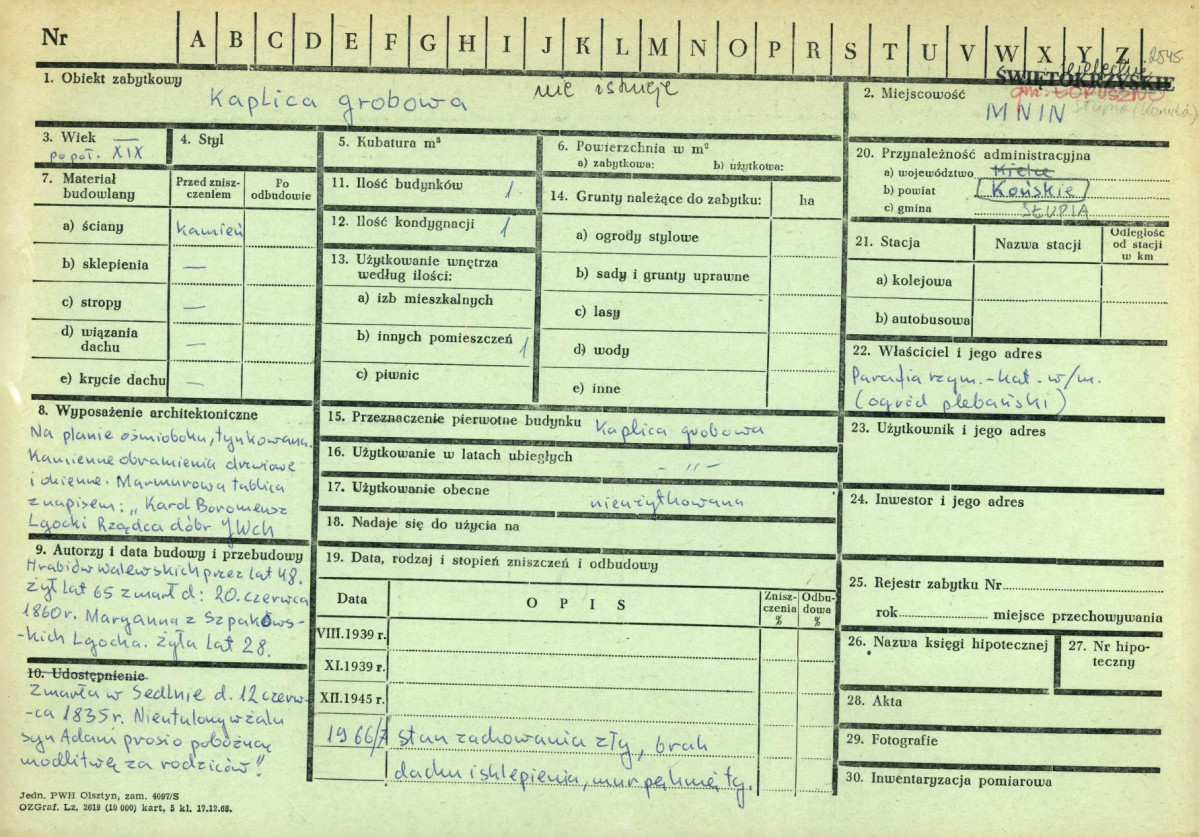 Nr A B C D E F G H I J K L M N O P R S T U V W X Y Z 2545.
ŚWIĘTOKRZYSKIE
1. Obiekt zabytkowy
Kaplica grobowa
nie istnieje
2. Miejscowość
gm. ŁOPUSZNO
MNIN
Słupia (Konecka)
3. Wiek —
po poł. XIX
4. Styl
5. Kubatura m³
6. Powierzchnia w m²
a) zabytkowa: b) użytkowa:
20. Przynależność administracyjna
a) województwo Kielce
b) powiat Końskie
c) gmina SŁUPIA
7. Materiał budowlany
Przed zniszczeniem
Po odbudowie
a) ściany kamień
b) sklepienia —
c) stropy —
d) wiązania dachu —
e) krycie dachu —
11. Ilość budynków 1.
12. Ilość kondygnacji 1
13. Użytkowanie wnętrza
według ilości:
a) izb mieszkalnych
b) innych pomieszczeń 1
c) piwnic
14. Grunty należące do zabytku: ha
a) ogrody stylowe
b) sady i grunty uprawne
c) lasy
d) wody
e) inne
21. Stacja
Nazwa stacji
Odległość
od stacji
w km
a) kolejowa
b) autobusowa
22. Właściciel i jego adres
Parafia rzym.-kat. w/m.
(ogród plebański)
8. Wyposażenie architektoniczne
Na planie ośmioboku, tynkowana.
Kamienne obramienia drzwiowe
i okienne. Marmurowa tablica
z napisem: „Karol Boromeusz
Lgocki Rządca dóbr JWch
9. Autorzy i data budowy i przebudowy
Hrabiów Walewskich przez lat 48.
żył lat 65 zmarł d: 20. czerwca
1860 r. Maryanna z Szpakows-
-kich Lgocka. żyła lat 28.
10. Udostępnienie
Zmarła w Sedlnie d. 12 czerw-
-ca 1835 r. Nieutulony w żalu
syn Adam prosi o pobożną
modlitwę za rodziców".
15. Przeznaczenie pierwotne budynku Kaplica grobowa
16. Użytkowanie w latach ubiegłych - „ -
17. Użytkowanie obecne nieużytkowana
18. Nadaje się do użycia na
19. Data, rodzaj i stopień zniszczeń i odbudowy
Data
OPIS
Zniszczenia %
Odbudowa %
VIII.1939 r.
XI.1939 r.
XII.1945 r.
1966/7 stan zachowania zły, brak
dachu i sklepienia, mur pęknięty.
23. Użytkownik i jego adres
24. Inwestor i jego adres
25. Rejestr zabytku Nr
rok miejsce przechowywania
26. Nazwa księgi hipotecznej
27. Nr hipo-
teczny
28. Akta
29. Fotografie
30. Inwentaryzacja pomiarowa
Jedn. PWH Olsztyn, zam. 4097/S
OZGraf. Lz. 2619 (10 000) kart, 5 kl. 17.12.68.